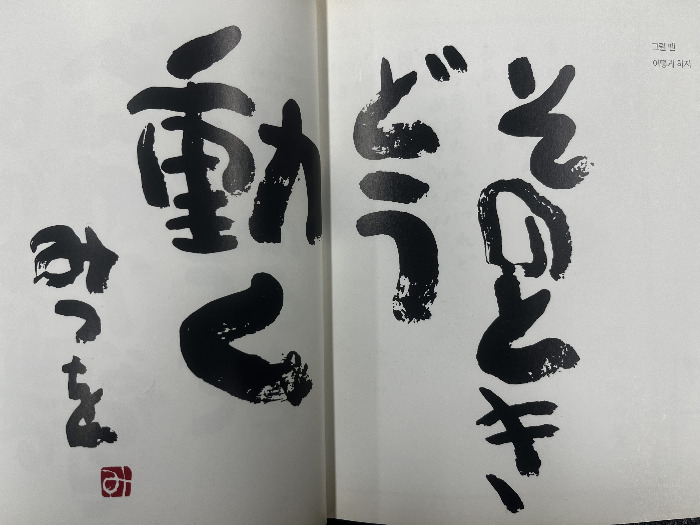 그럴 땐
어떻게 하지
そのとき
どう
動く
みつを
み